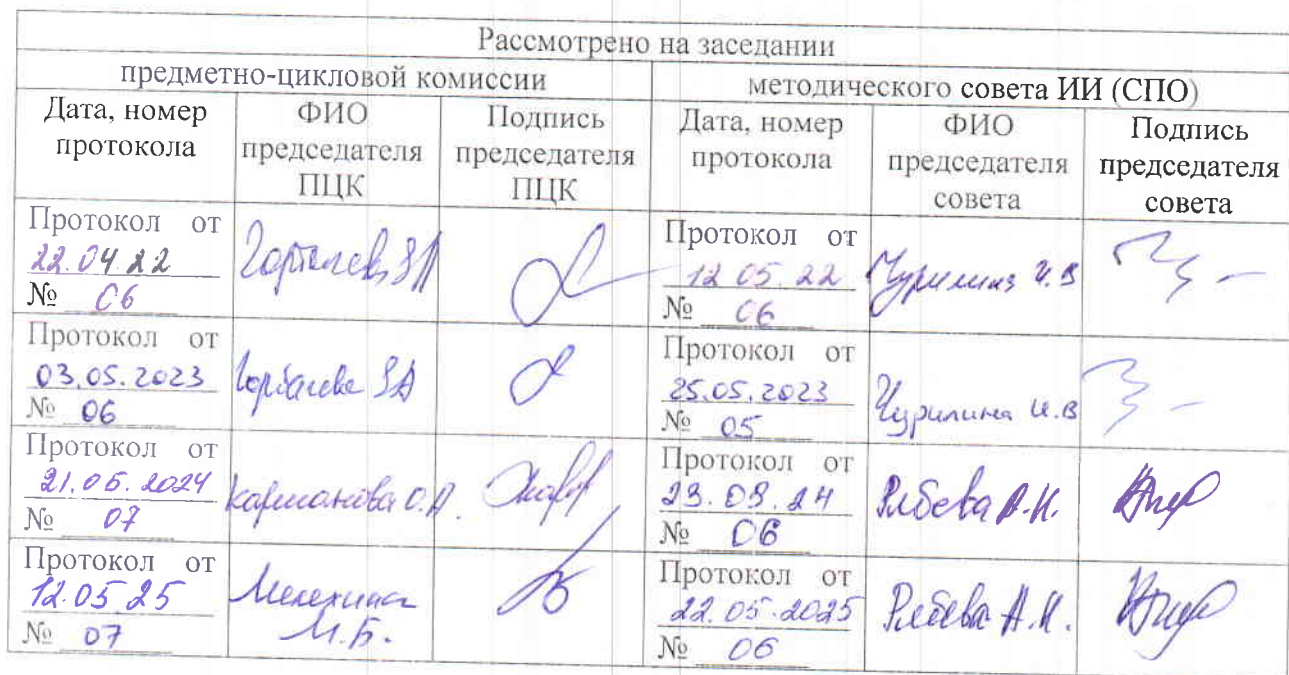 Рассмотрено на заседании
предметно-цикловой комиссии методического совета ИИ (СПО)
Дата, номер протокола ФИО председателя ПЦК Подпись председателя ПЦК Дата, номер протокола ФИО председателя совета Подпись председателя совета
Протокол от
22.04.22
№ 06
Протокол от
12 05. 22
№ 06
Чурилина И.В
Протокол от
03.05.2023
№ 06
Горбачева
Протокол от
25.05.2023
№ 05
Чурилина И.В
Протокол от
21.05.2024
№ 07
Карманова О.А.
Протокол от
№ 06
Рябева А.Н.
Протокол от
12.05 25
№ 07
Мелехина
М.Б.
Протокол от
22.05.2025
№ 06
Рябева А.Н.